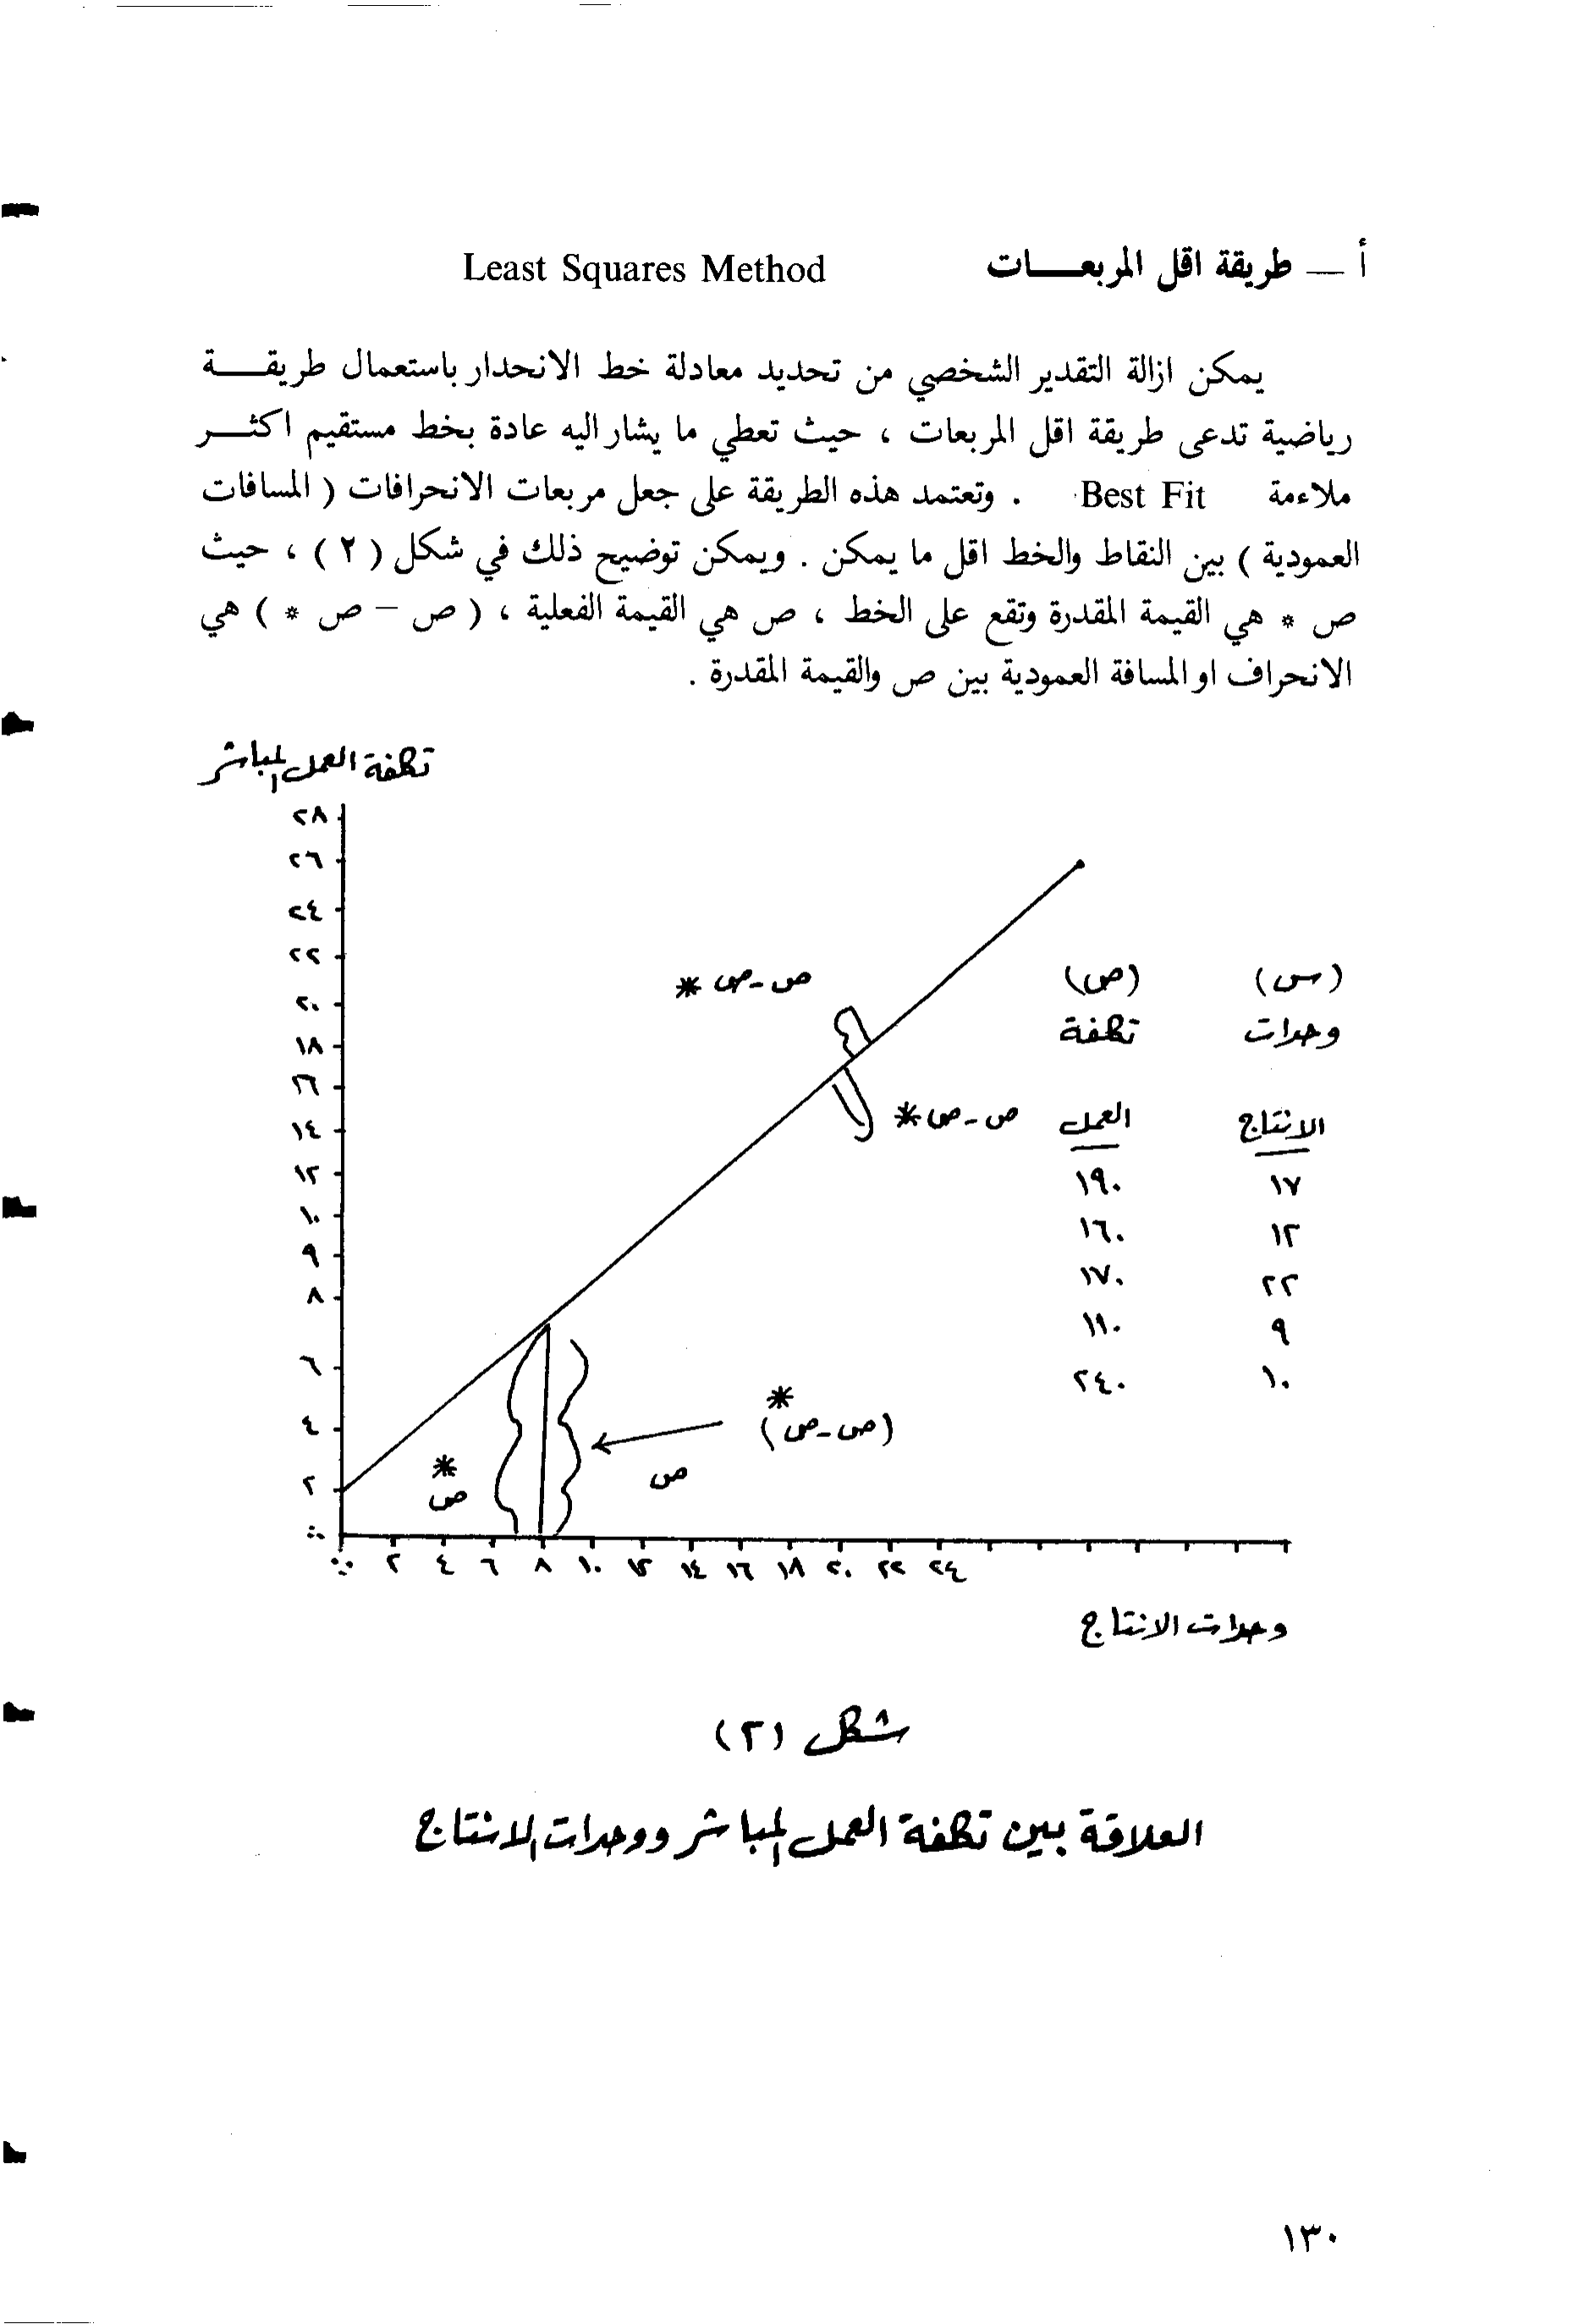 أ — طريقة اقل المربعـــات Least Squares Method
يمكن ازالة التقدير الشخصي من تحديد معادلة خط الانحدار باستعمال طريقـــة
رياضية تدعى طريقة اقل المربعات ، حيث تعطي ما يشار اليه عادة بخط مستقيم اكثـــر
ملاءمة Best Fit . وتعتمد هذه الطريقة على جعل مربعات الانحرافات ( المسافات
العمودية ) بين النقاط والخط اقل ما يمكن . ويمكن توضيح ذلك في شكل ( ٢ ) ، حيث
ص * هي القيمة المقدرة وتقع على الخط ، ص هي القيمة الفعلية ، ( ص — ص * ) هي
الانحراف او المسافة العمودية بين ص والقيمة المقدرة .
تكلفة العمل المباشر
٢٨
٢٦
٢٤
٢٢
٢٠
١٨
١٦
١٤
١٢
١٠
٩
٨
٦
٤
٢
٠
ص - ص *
ص - ص *
(ص - ص)
*
ص
*
ص
(س) (ص)
وحدات تكلفة
الانتاج العمل
١٧ ١٩٠
١٢ ١٦٠
٢٢ ١٧٠
٩ ١١٠
١٠ ٢٤٠
٠ ٢ ٤ ٦ ٨ ١٠ ١٢ ١٤ ١٦ ١٨ ٢٠ ٢٢ ٢٤
وحدات الانتاج
شكل (٢)
العلاقة بين تكلفة العمل المباشر ووحدات الانتاج
١٣٠